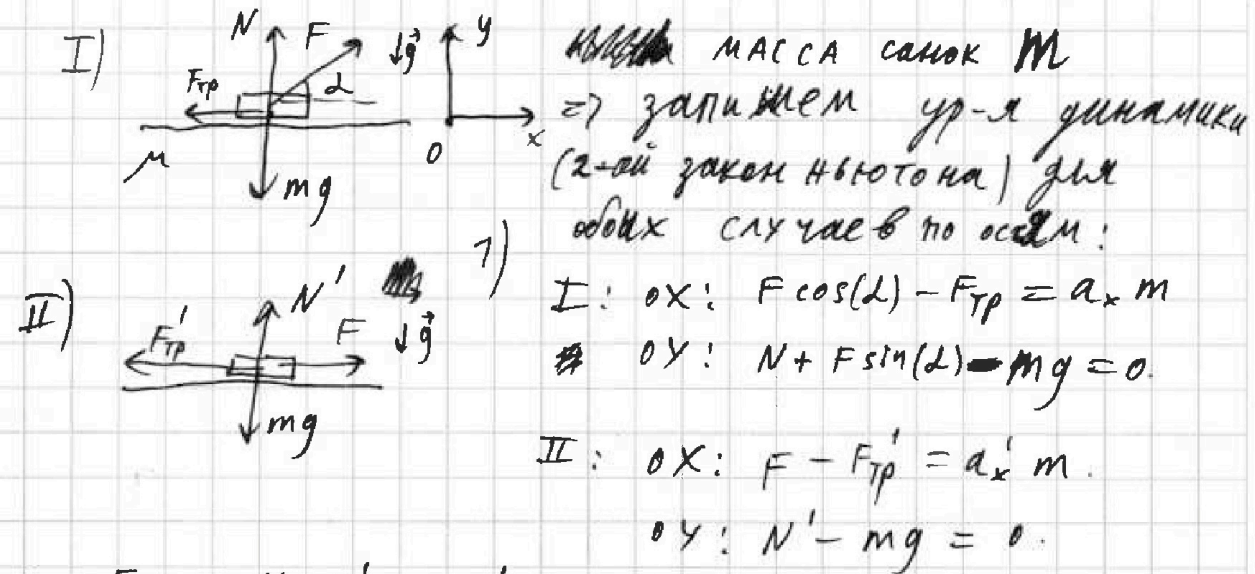 I)
N F ↓g⃗ y
Fтр α
μ mg 0 x
масса санок m
=> запишем ур-я динамики
(2-ой закон ньютона) для
обоих случаев по осям:
II)
N'
F'тр F ↓g⃗
mg
1)
I: OX: F cos(α) - Fтр = aₓ m
OY: N + F sin(α) - mg = 0.
II: OX: F - F'тр = a'ₓ m.
OY: N' - mg = 0.